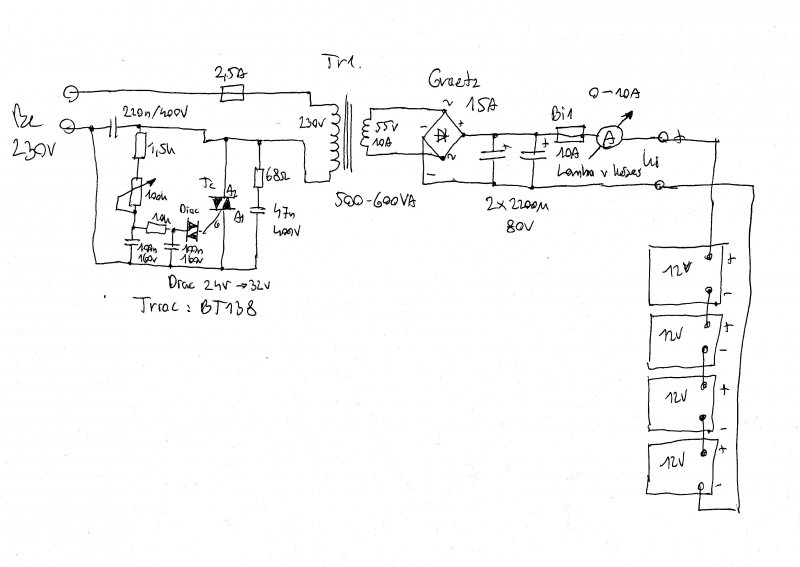 Tr1.
2,5A
Graetz
15A
0-10A
Be
230V
220n/400V
230V
55V
10A
Bi1
10A
+
Ki
1,5k
100k
10k
Diac
Tc
A2
A1
G
68Ω
47n
400V
100n
160V
100n
160V
500-600VA
2x2200µ
80V
Diac 24V → 32V
Triac: BT138
12V
+
-
12V
+
-
12V
+
-
12V
+
-